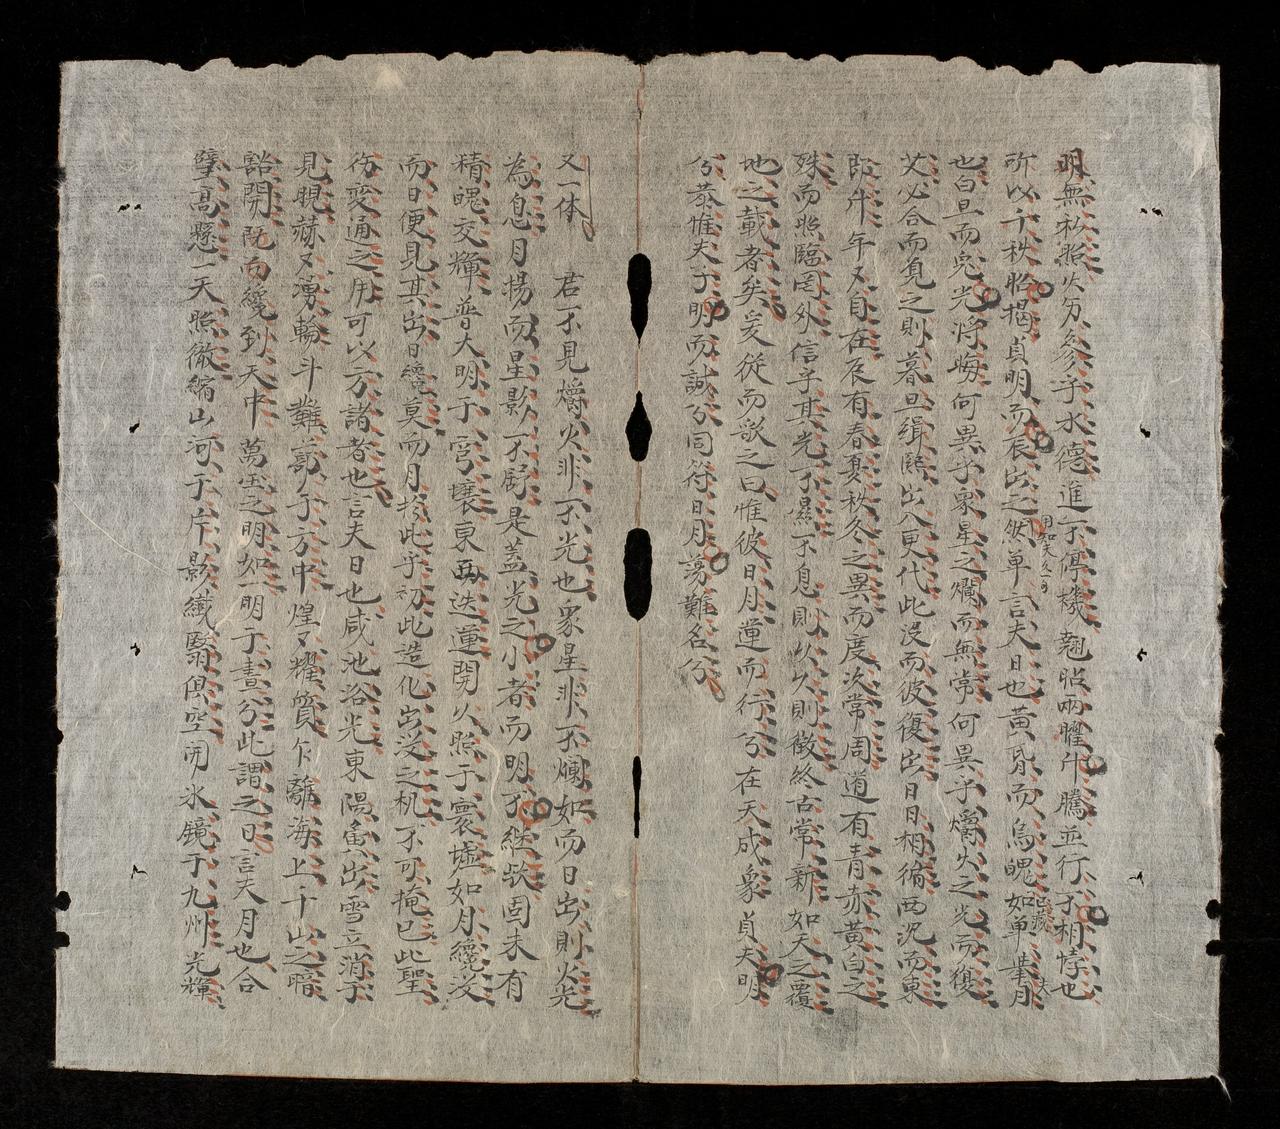 明無私照次勿參乎水德進示停機翹照兩曜升騰並行不相悖也
所以千秋昭揭貞明而辰出之然單言夫日也黃昏而烏魄如單業夫月
也白旦而兔光將晦何異乎衆星之爛而無常何異乎爝火之光而復
艾必合而負之則暮旦緝熙出入更代此沒而彼復出日日相循西沉而東
即升年又自在辰有春夏秋冬之異而度次常周道有青赤黃白之
殊而照臨罔外信乎其光不濕不息則久久則徵終古常新如天之覆
地之載者矣爰從而歌之曰惟彼日月運而行兮在天成象貞夫明
兮恭惟夫子明而誠兮同符日月蕩難名兮
又一体 君不見爝火非不光也衆星非不爛如而日出則火光
為息月揚而星影不舒是蓋光之小者而明不継欤固未有
精魄交輝普大明于穹壤東西迭運開久照于寰墟如月纔沒
而日便見其出日纔莫而月於此乎初此造化出没之机不可掩已此聖
後變通之用可以方諸者也言夫日也咸池浴光東隅奮出雪立消于
見晛赫又湧輪斗難窮于方中煌々耀質乍離海上千山之暗
豁開既而纔到天中萬宝之明如一明于晝兮此謂之日言夫月也合
璧高懸一天照徹縮山河于片影纖翳俱空開氷鏡于九州光輝